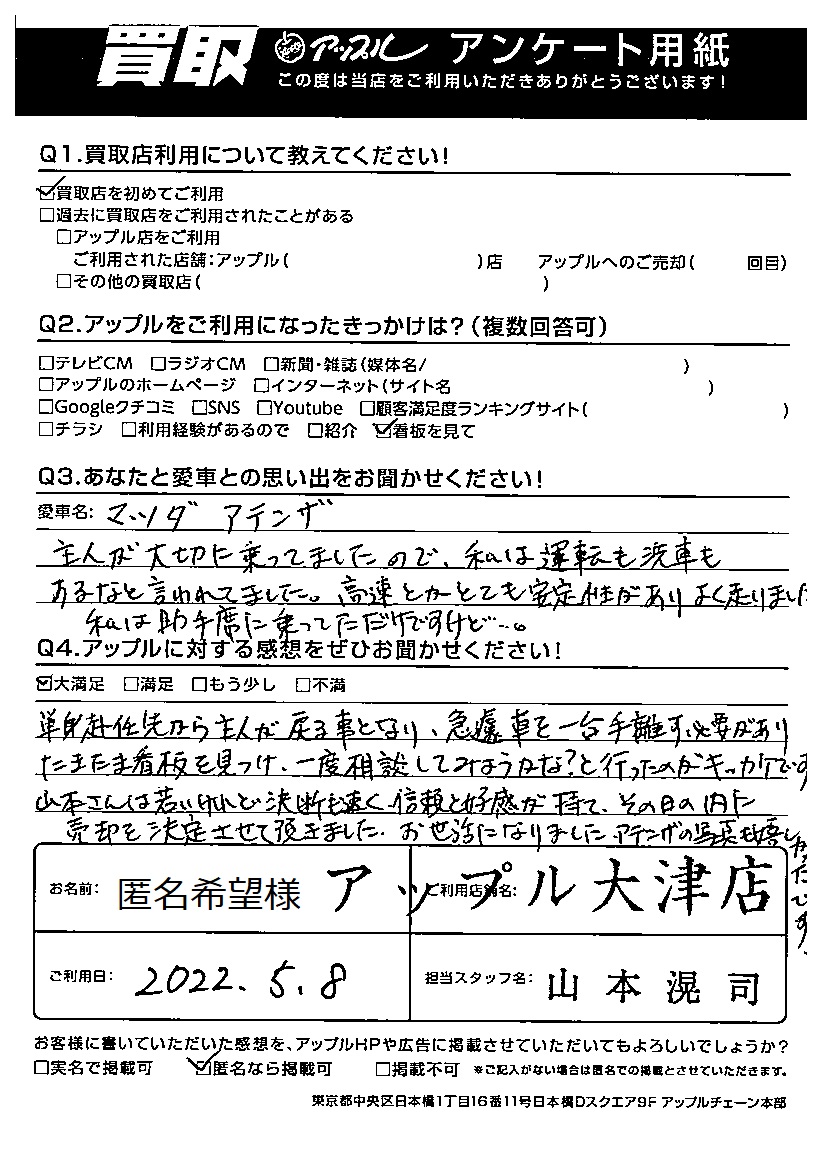 買取 アップル アンケート用紙
この度は当店をご利用いただきありがとうございます!
Q1.買取店利用について教えてください!
☑買取店を初めてご利用
□過去に買取店をご利用されたことがある
□アップル店をご利用
ご利用された店舗:アップル( )店 アップルへのご売却( 回目)
□その他の買取店( )
Q2.アップルをご利用になったきっかけは?(複数回答可)
□テレビCM □ラジオCM □新聞・雑誌(媒体名/ )
□アップルのホームページ □インターネット(サイト名 )
□Googleクチコミ □SNS □Youtube □顧客満足度ランキングサイト( )
□チラシ □利用経験があるので □紹介 ☑看板を見て
Q3.あなたと愛車との思い出をお聞かせください!
愛車名: マツダ アテンザ
主人が大切に乗ってましたので、私は運転も洗車も
するなと言われてました。高速とかとても安定性がありよく走りました
私は助手席に乗ってただけですけど…。
Q4.アップルに対する感想をぜひお聞かせください!
☑大満足 □満足 □もう少し □不満
単身赴任先から主人が戻る事となり、急遽車を一台手離す必要があり
たまたま看板を見つけ、一度相談してみようかな?と行ったのがキッカケです
山本さんは若いけれど決断も速く信頼と好感が持て、その日の内に
売却を決定させて頂きました。お世話になりました アテンザの写真も嬉しかったです。
お名前: 匿名希望様 ご利用店舗名: アップル大津店
ご利用日: 2022.5.8 担当スタッフ名: 山本滉司
お客様に書いていただいた感想を、アップルHPや広告に掲載させていただいてもよろしいでしょうか?
□実名で掲載可 ☑匿名なら掲載可 □掲載不可 ※ご記入がない場合は匿名での掲載とさせていただきます。
東京都中央区日本橋1丁目16番11号日本橋Dスクエア9F アップルチェーン本部